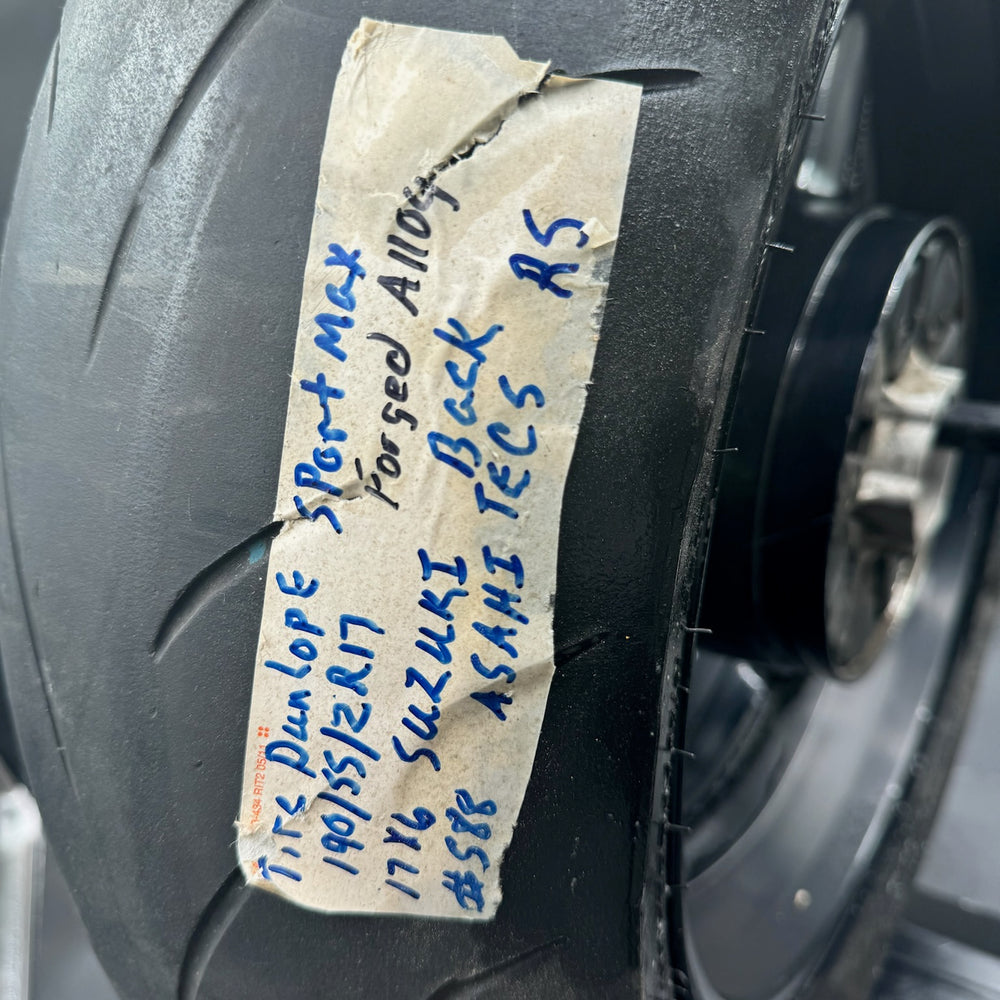 Tire Dunlope Sport Max
190/55/ZR17 Forged Alloy
17x6 SUZUKI Back
#588 ASAHI TECS RS
11434 RIT2 05/11